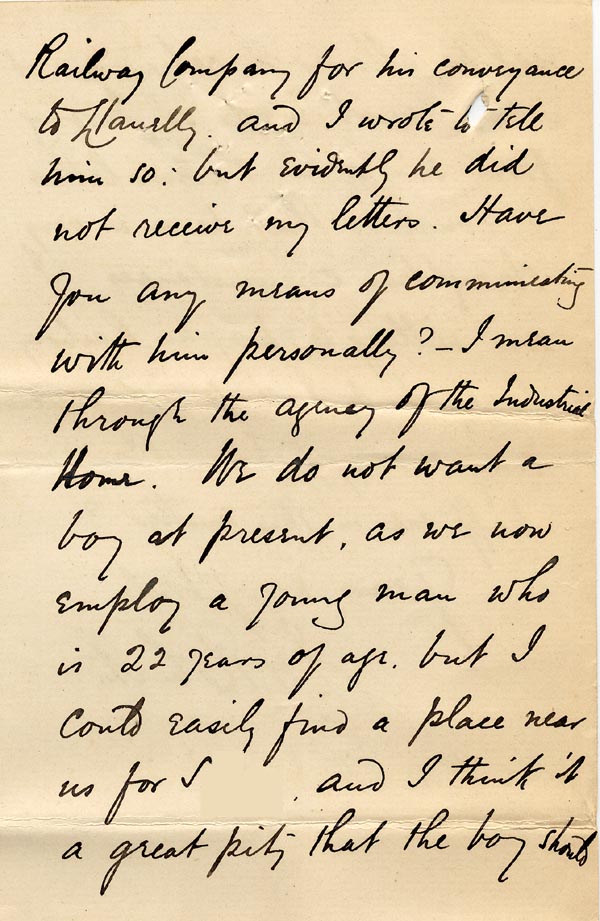 Railway Company for his conveyance
to Llanelly. and I wrote to tell
him so: but evidently he did
not receive my letters. Have
you any means of communicating
with him personally? – I mean
through the agency of the Industrial
Home. We do not want a
boy at present, as we now
employ a young man who
is 22 years of age. but I
could easily find a place near
us for S , and I think it
a great pity that the boy should